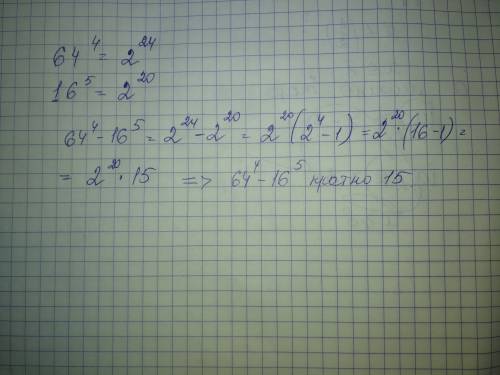 64⁴ = 2²⁴
16⁵ = 2²⁰
64⁴ - 16⁵ = 2²⁴ - 2²⁰ = 2²⁰(2⁴ - 1) = 2²⁰·(16 - 1) =
= 2²⁰ · 15 => 64⁴ - 16⁵ кратно 15